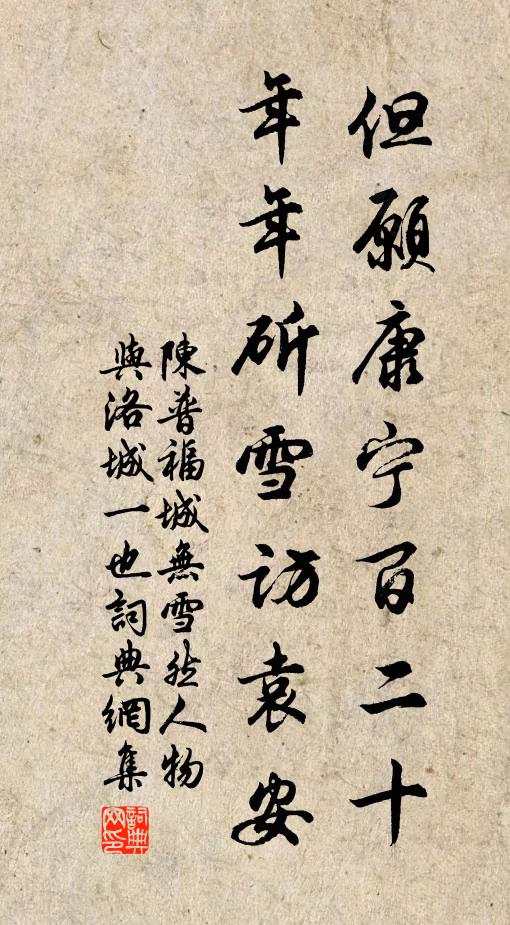 但願康宁百二十
年年斫雪訪袁安
陳普福城無雪然人物
與洛城一也詞典網集
詞典网印